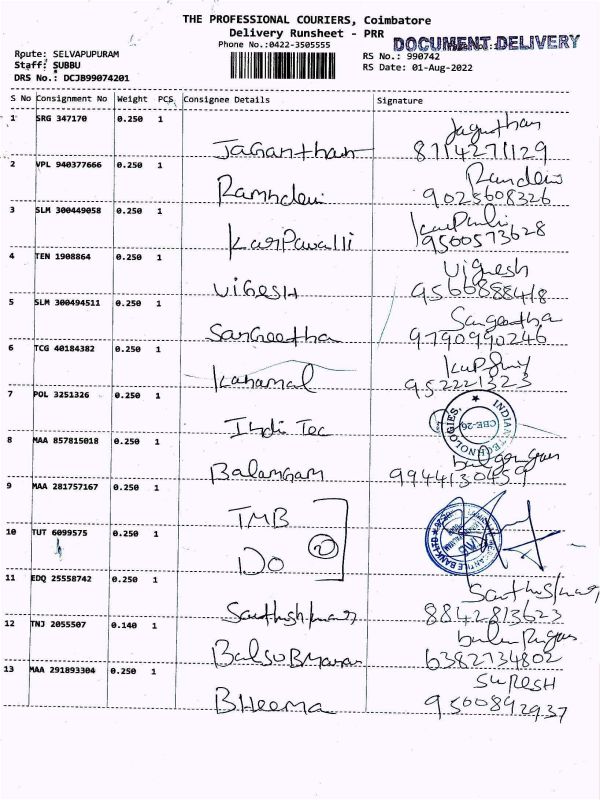 THE PROFESSIONAL COURIERS, Coimbatore
Delivery Runsheet - PRR
Phone No.:0422-3505555
DOCUMENT DELIVERY
Route: SELVAPUPURAM
Staff: SUBBU
DRS No.: DCJB99074201
RS No.: 990742
RS Date: 01-Aug-2022
S No Consignment No Weight PCS Consignee Details Signature
1 SRG 347170 0.250 1
Jaganathan 8714271129
2 VPL 940377666 0.250 1
Ramhdevi 9025608326
3 SLM 300449058 0.250 1
KarPavalli 9500573628
4 TEN 1908864 0.250 1 Vignesh
ViGESH 9566888418
5 SLM 300494511 0.250 1 Sangeetha
SanGeetha 9790990246
6 TCG 40184382 0.250 1
Kanamal 952221323
7 POL 3251326 0.250 1
Indi Tec INDIAN TECHNOLOGIES. CBE-26
8 MAA 857815018 0.250 1
9944130459
9 MAA 281757167 0.250 1
TMB
10 TUT 6099575 0.250 1
DO 2
11 EDQ 25558742 0.250 1
8842813623
12 TNJ 2055507 0.140 1
6382734802
13 MAA 291893304 0.250 1 SuReSH
BHeema 9500892937